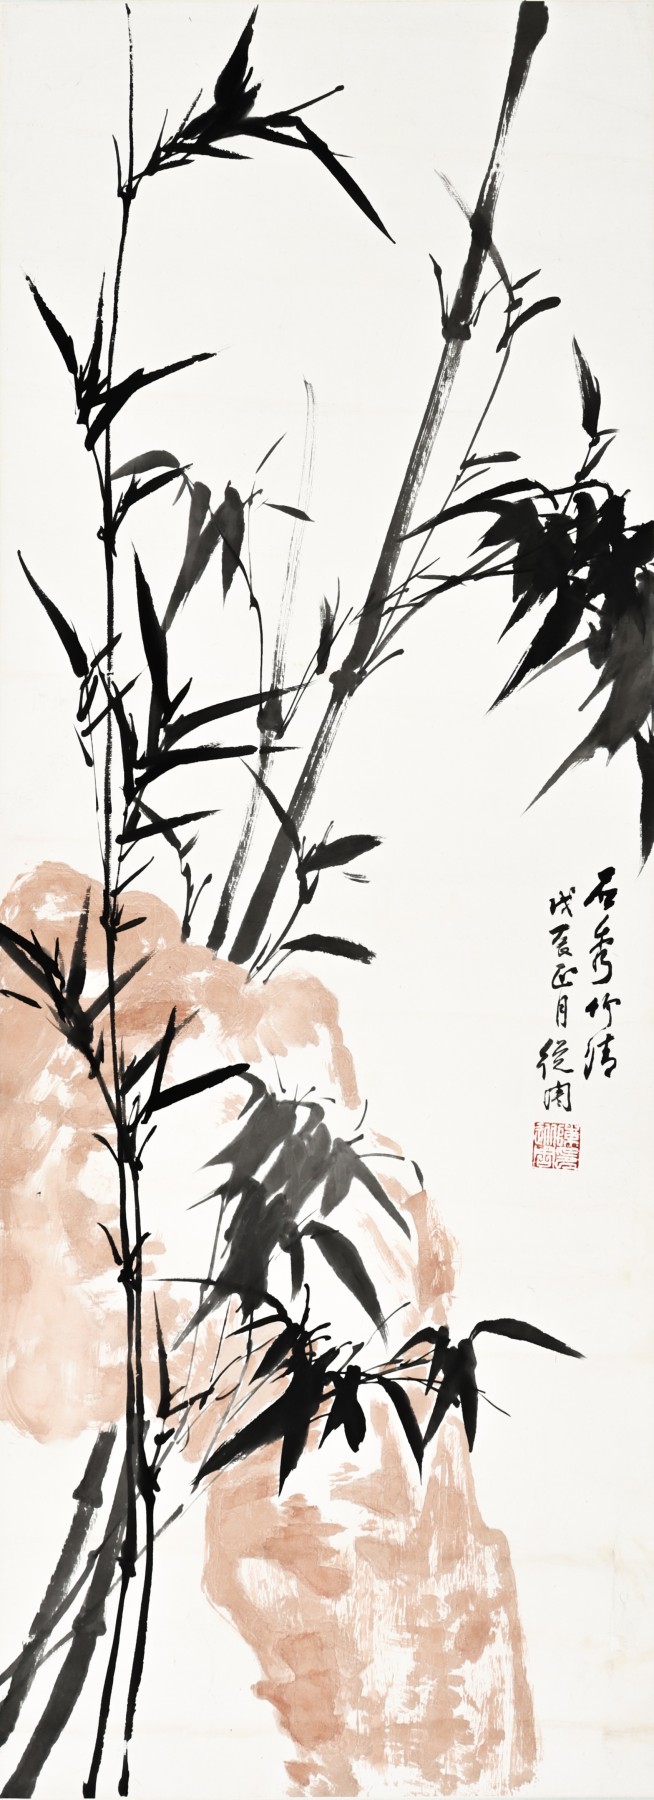 石秀竹清
戊辰正月從周